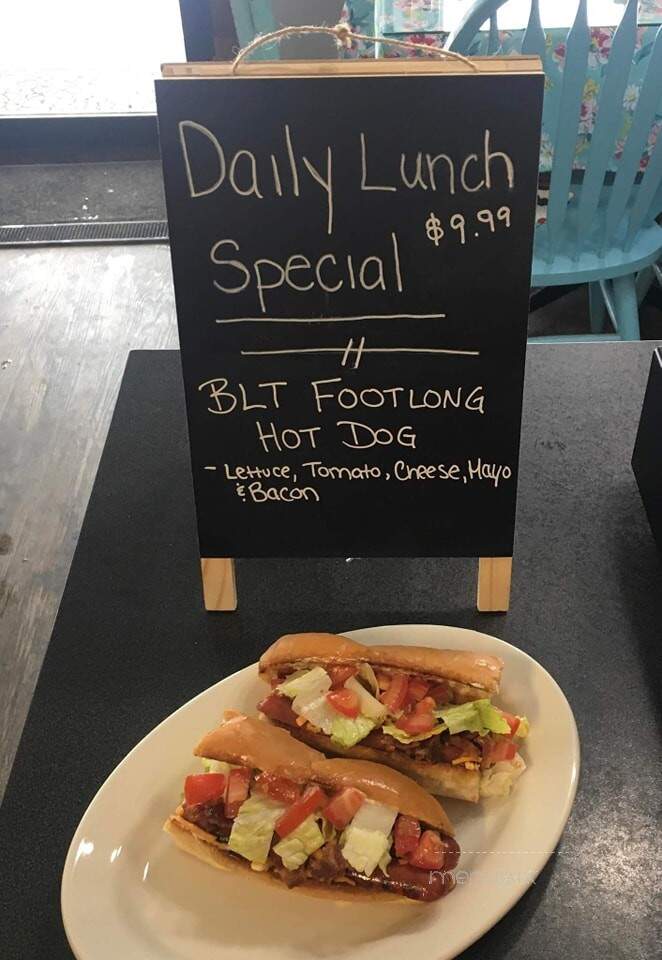 Daily Lunch
$9.99
Special
BLT FOOTLONG
HOT DOG
- Lettuce, Tomato, Cheese, Mayo
& Bacon